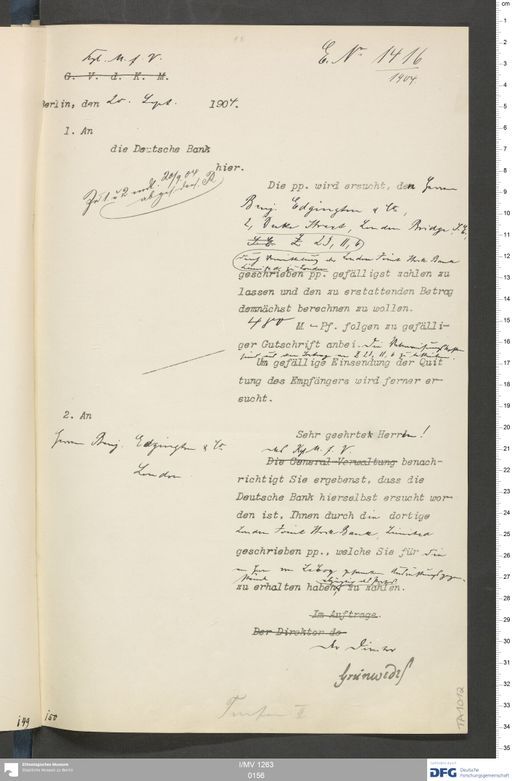 E. No 1416
1904
Kgl. M. f. V.
G. V. d. K. M.
Berlin, den 20. Sept. 1904.
1. An
die Deutsche Bank
hier.
Zu 1 u 2 mit 20/9.04
Die pp. wird ersucht, den Herrn
Benj. Edgington & Co,
2, Duke Street, London Bridge S.E.
£ 23, 11, 6
durch Vermittlung der London Joint Stock Bank
geschrieben pp. gefälligst zahlen zu
lassen und den zu erstattenden Betrag
demnächst berechnen zu wollen.
M - Pf. folgen zu gefälli-
ger Gutschrift anbei.
Um gefällige Einsendung der Quit
tung des Empfängers wird ferner er-
sucht.
2. An
Herrn Benj. Edgington & Co.
London
Sehr geehrter Herren!
Die General-Verwaltung benach-
richtigt Sie ergebenst, dass die
Deutsche Bank hierselbst ersucht wor-
den ist, Ihnen durch die dortige
London Joint Stock Bank, Limited
geschrieben pp., welche Sie für die
zu erhalten haben, zu zahlen.
Im Auftrage.
Der Direktor de
Der Direktor
Grünwedel
Turfan II
TA 1012
i49
i50
Ethnologisches Museum
Staatliche Museen zu Berlin
I/MV 1263
0156
DFG Deutsche
Forschungsgemeinschaft